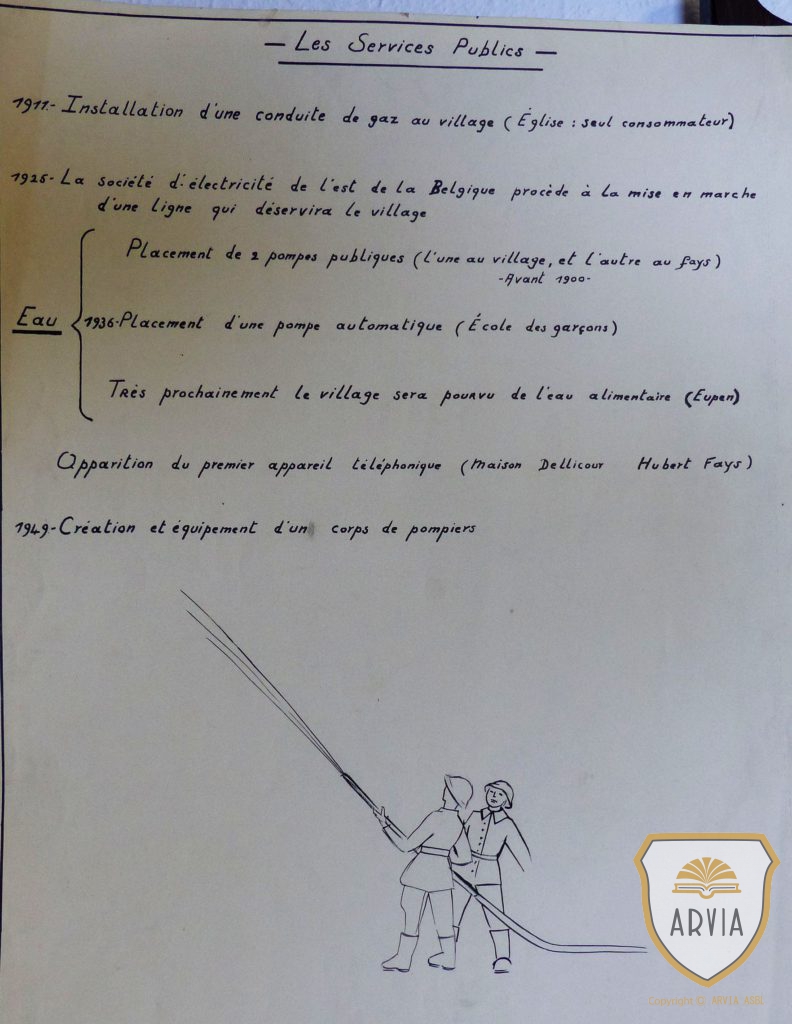 — Les Services Publics —
1911.- Installation d'une conduite de gaz au village (Église : seul consommateur)
1925.- La société d'électricité de l'est de la Belgique procède à la mise en marche
d'une ligne qui déservira le village
Placement de 2 pompes publiques (l'une au village, et l'autre au fays)
-Avant 1900-
Eau
1936.- Placement d'une pompe automatique (École des garçons)
Très prochainement le village sera pourvu de l'eau alimentaire (Eupen)
Apparition du premier appareil téléphonique (Maison Dellicour Hubert Fays)
1949.- Création et équipement d'un corps de pompiers
ARVIA
Copyright © ARVIA ASBL